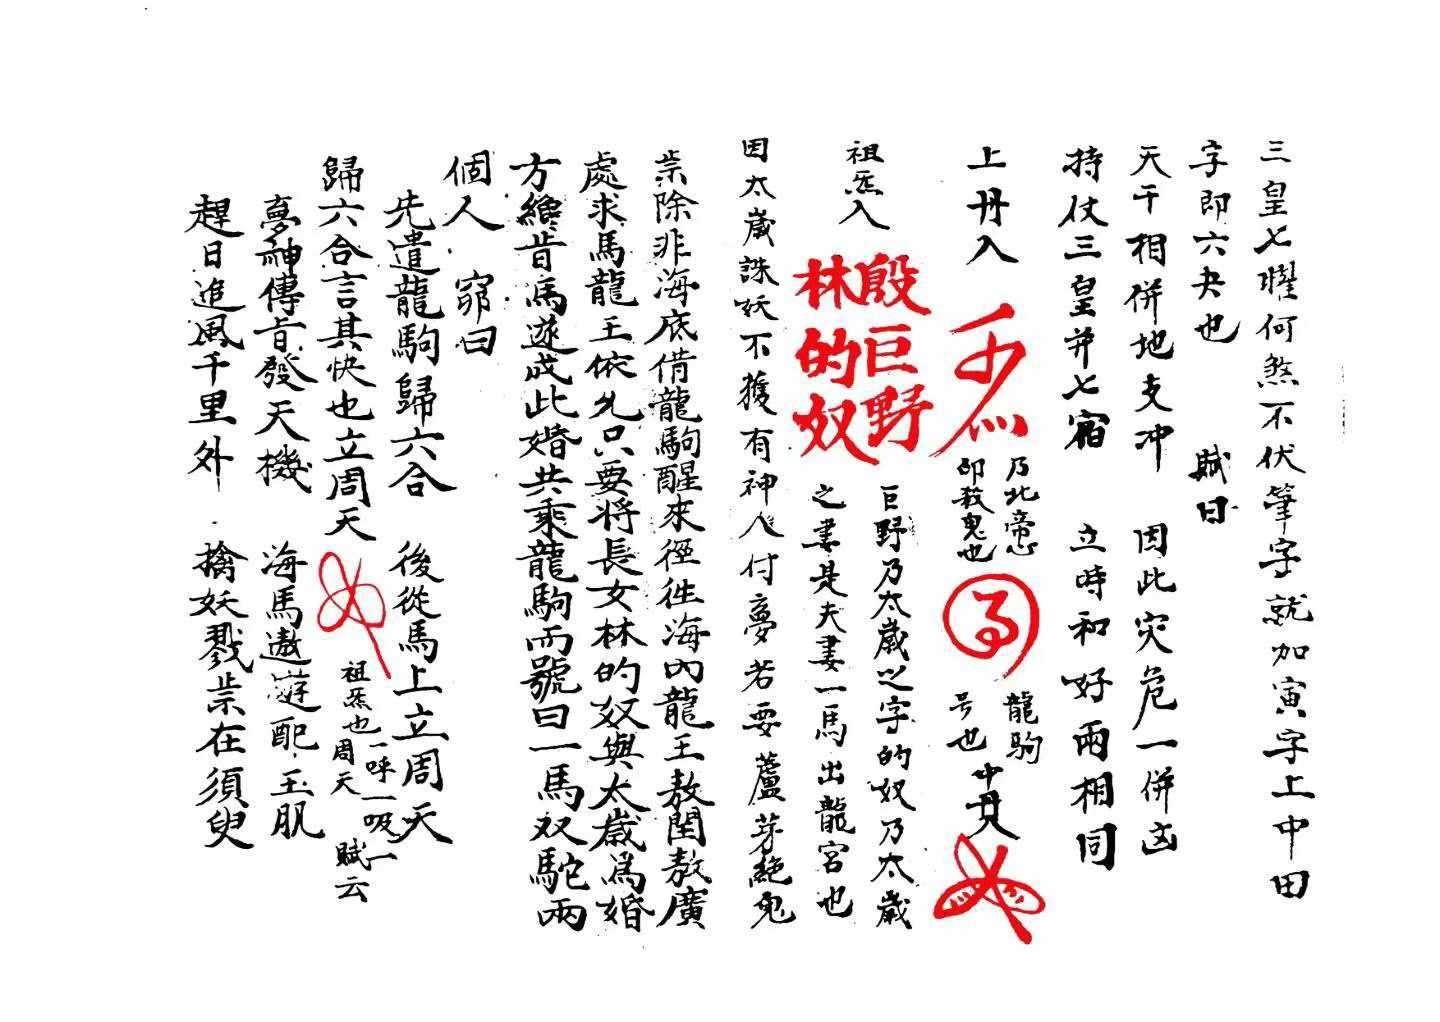 三皇七曜何煞不伏筆字就加寅字上中田
字即六夬也 賦曰
天干相併地支冲 因此灾危一併凶
持仗三皇并七宿 立時和好兩相同
上丹入
乃北帝心
即救鬼也
龍駒
号也
中丹入
祖炁入
殷巨野
林的奴
巨野乃太歲之字的奴乃太歲
之妻是夫妻一馬出龍宮也
因太歲誅妖不獲有神人付夢若要蘆芽絕鬼
祟除非海底借龍駒醒來徑徃海內龍王敖閏敖廣
處求馬龍王依允只要將長女林的奴與太歲爲婚
方總肯馬遂成此婚共乘龍駒而號曰一馬双駝兩
個人 窈曰
先遣龍駒歸六合 後從馬上立周天
歸六合言其快也立周天
祖炁也一呼一吸一
周天 賦云
夢神傳旨發天機 海馬遨遊配玉肌
趕日追風千里外 擒妖戮祟在須臾